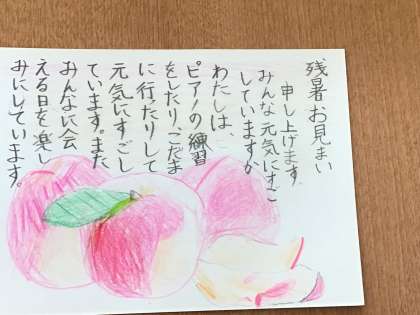 残暑お見まい
申し上げます。
みんな元気にすご
していますか
わたしは、
ピアノの練習
をしたり、こだま
に行ったりして
元気にすごし
ています。また
みんなに会
える日を楽し
みにしています。